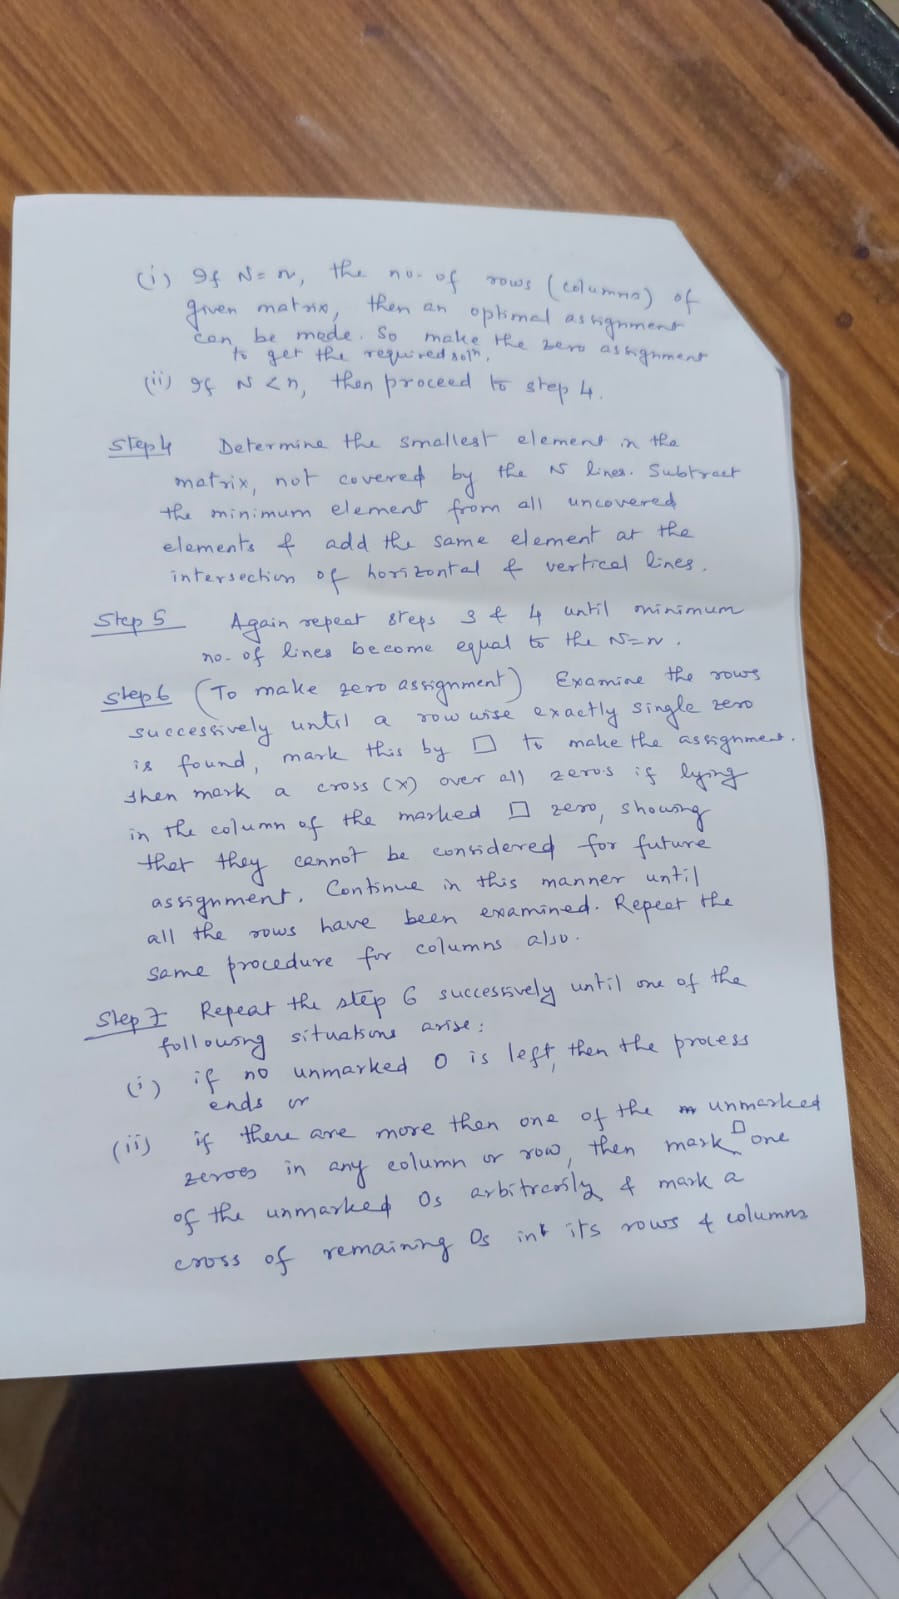 (i) If N = n, the no. of rows (columns) of
given matrix, then an optimal assignment
can be made. So make the zero assignment
to get the required soln.
(ii) If N < n, then proceed to step 4.
Step 4 Determine the smallest element in the
matrix, not covered by the N lines. Subtract
the minimum element from all uncovered
elements & add the same element at the
intersection of horizontal & vertical lines.
Step 5 Again repeat steps 3 & 4 until minimum
no. of lines become equal to the N=n.
Step 6 (To make zero assignment) Examine the rows
successively until a row wise exactly single zero
is found, mark this by □ to make the assignment.
Then mark a cross (x) over all zeros if lying
in the column of the marked □ zero, showing
that they cannot be considered for future
assignment. Continue in this manner until
all the rows have been examined. Repeat the
same procedure for columns also.
Step 7 Repeat the step 6 successively until one of the
following situations arise:
(i) if no unmarked 0 is left, then the process
ends or
(ii) if there are more then one of the unmarked
zeroes in any column or row, then mark □ one
of the unmarked 0s arbitrarily & mark a
cross of remaining 0s in its rows & columns